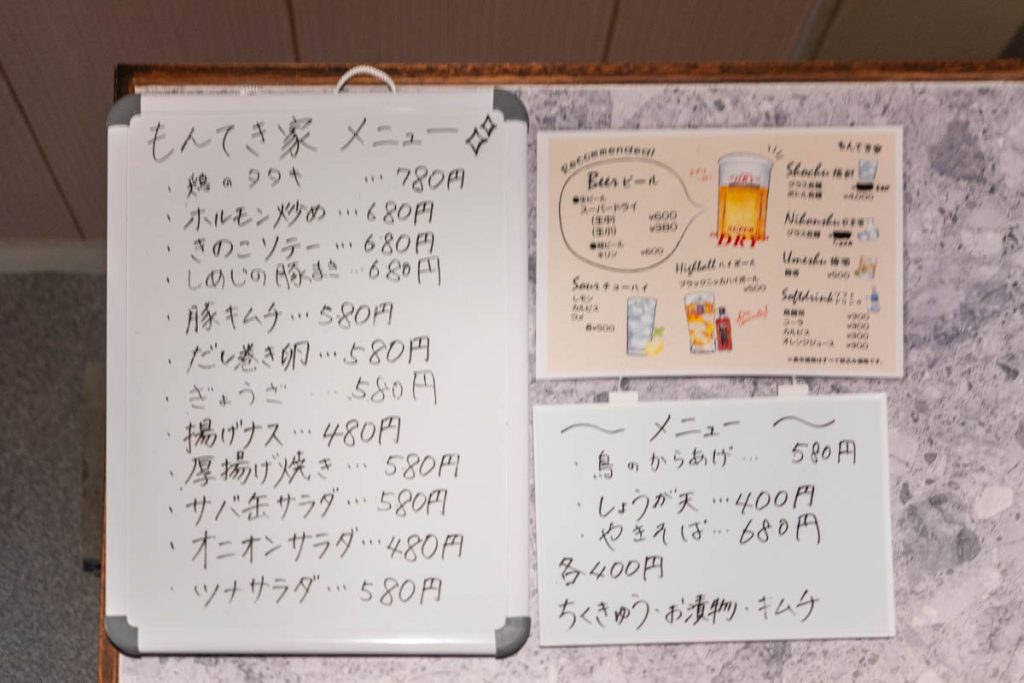 もんてき家 メニュー
・鶏のタタキ …780円
・ホルモン炒め…680円
・きのこソテー…680円
・しめじの豚まき…680円
・豚キムチ…580円
・だし巻き卵…580円
・ぎょうざ…580円
・揚げナス…480円
・厚揚げ焼き…580円
・サバ缶サラダ…580円
・オニオンサラダ…480円
・ツナサラダ…580円
Recommended!
Beer ビール
●生ビール
スーパードライ
(生中) ¥600
(生小) ¥380
●瓶ビール
キリン ¥600
SUPER
DRY
Sour チューハイ
レモン
カルピス
ウメ
各¥500
Highball ハイボール
ブラックニッカハイボール
¥500
もんてき家
Shochu 焼酎
グラス各種
ボトル各種
Nihonshu 日本酒
グラス各種
Umeshu 梅酒
梅酒 ¥500
Softdrink ソフトドリンク
烏龍茶 ¥300
コーラ ¥300
カルピス ¥300
オレンジジュース ¥300
※表示価格はすべて税込み価格です。
〜 メニュー 〜
・鳥のからあげ…580円
・しょうが天…400円
・やきそば…680円
各400円
ちくきゅう・お漬物・キムチ